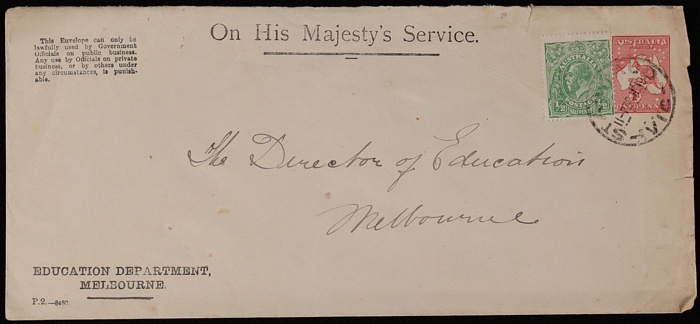 On His Majesty's Service.
This Envelope can only be
lawfully used by Government
Officials on public business.
Any use by Officials on private
business, or by others under
any circumstances, is punish-
able.
AUSTRALIA
½ ½
POSTAGE
AUSTRALIA
PENNY
VIC
The Director of Education
Melbourne
EDUCATION DEPARTMENT,
MELBOURNE.
P.2.—8480.